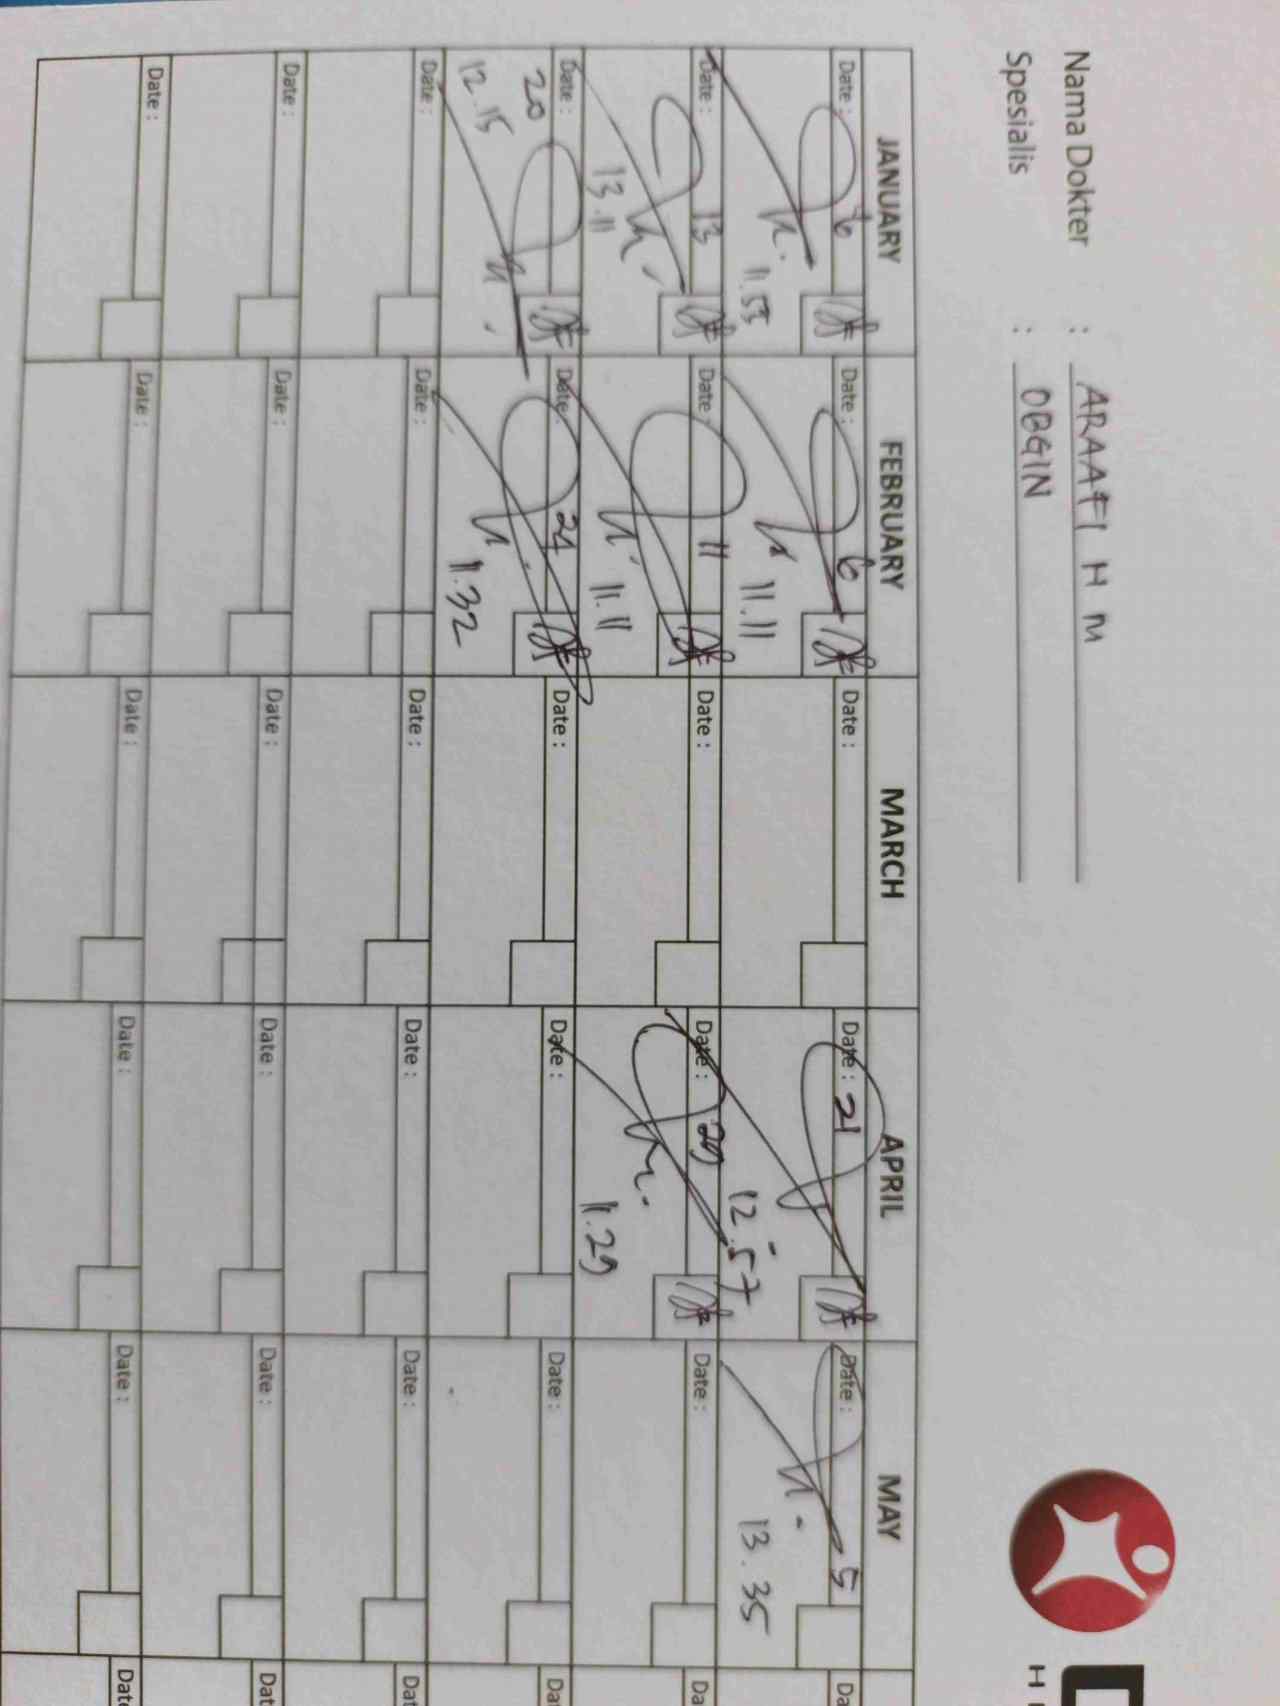 Nama Dokter : ARAAFI H M
Spesialis : OBGIN
JANUARY FEBRUARY MARCH APRIL MAY
Date : 6 Date : 6 Date : Date : 21 Date : 5
11.53 11.11 12.57 13.35
Date : 13 Date : 11 Date : Date : 29 Date :
13.11 11.11 11.29
Date : 20 Date : 21 Date : Date : Date :
12.15 11.32
Date : Date : Date : Date : Date :
Date : Date : Date : Date : Date :
Date : Date : Date : Date : Date :